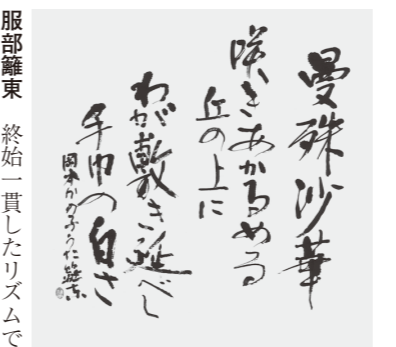 曼珠沙華
咲きあかるめる
丘の上に
わが敷き延べし
手巾の白さ
岡本かの子うた 籬東
服部籬東　終始一貫したリズムで